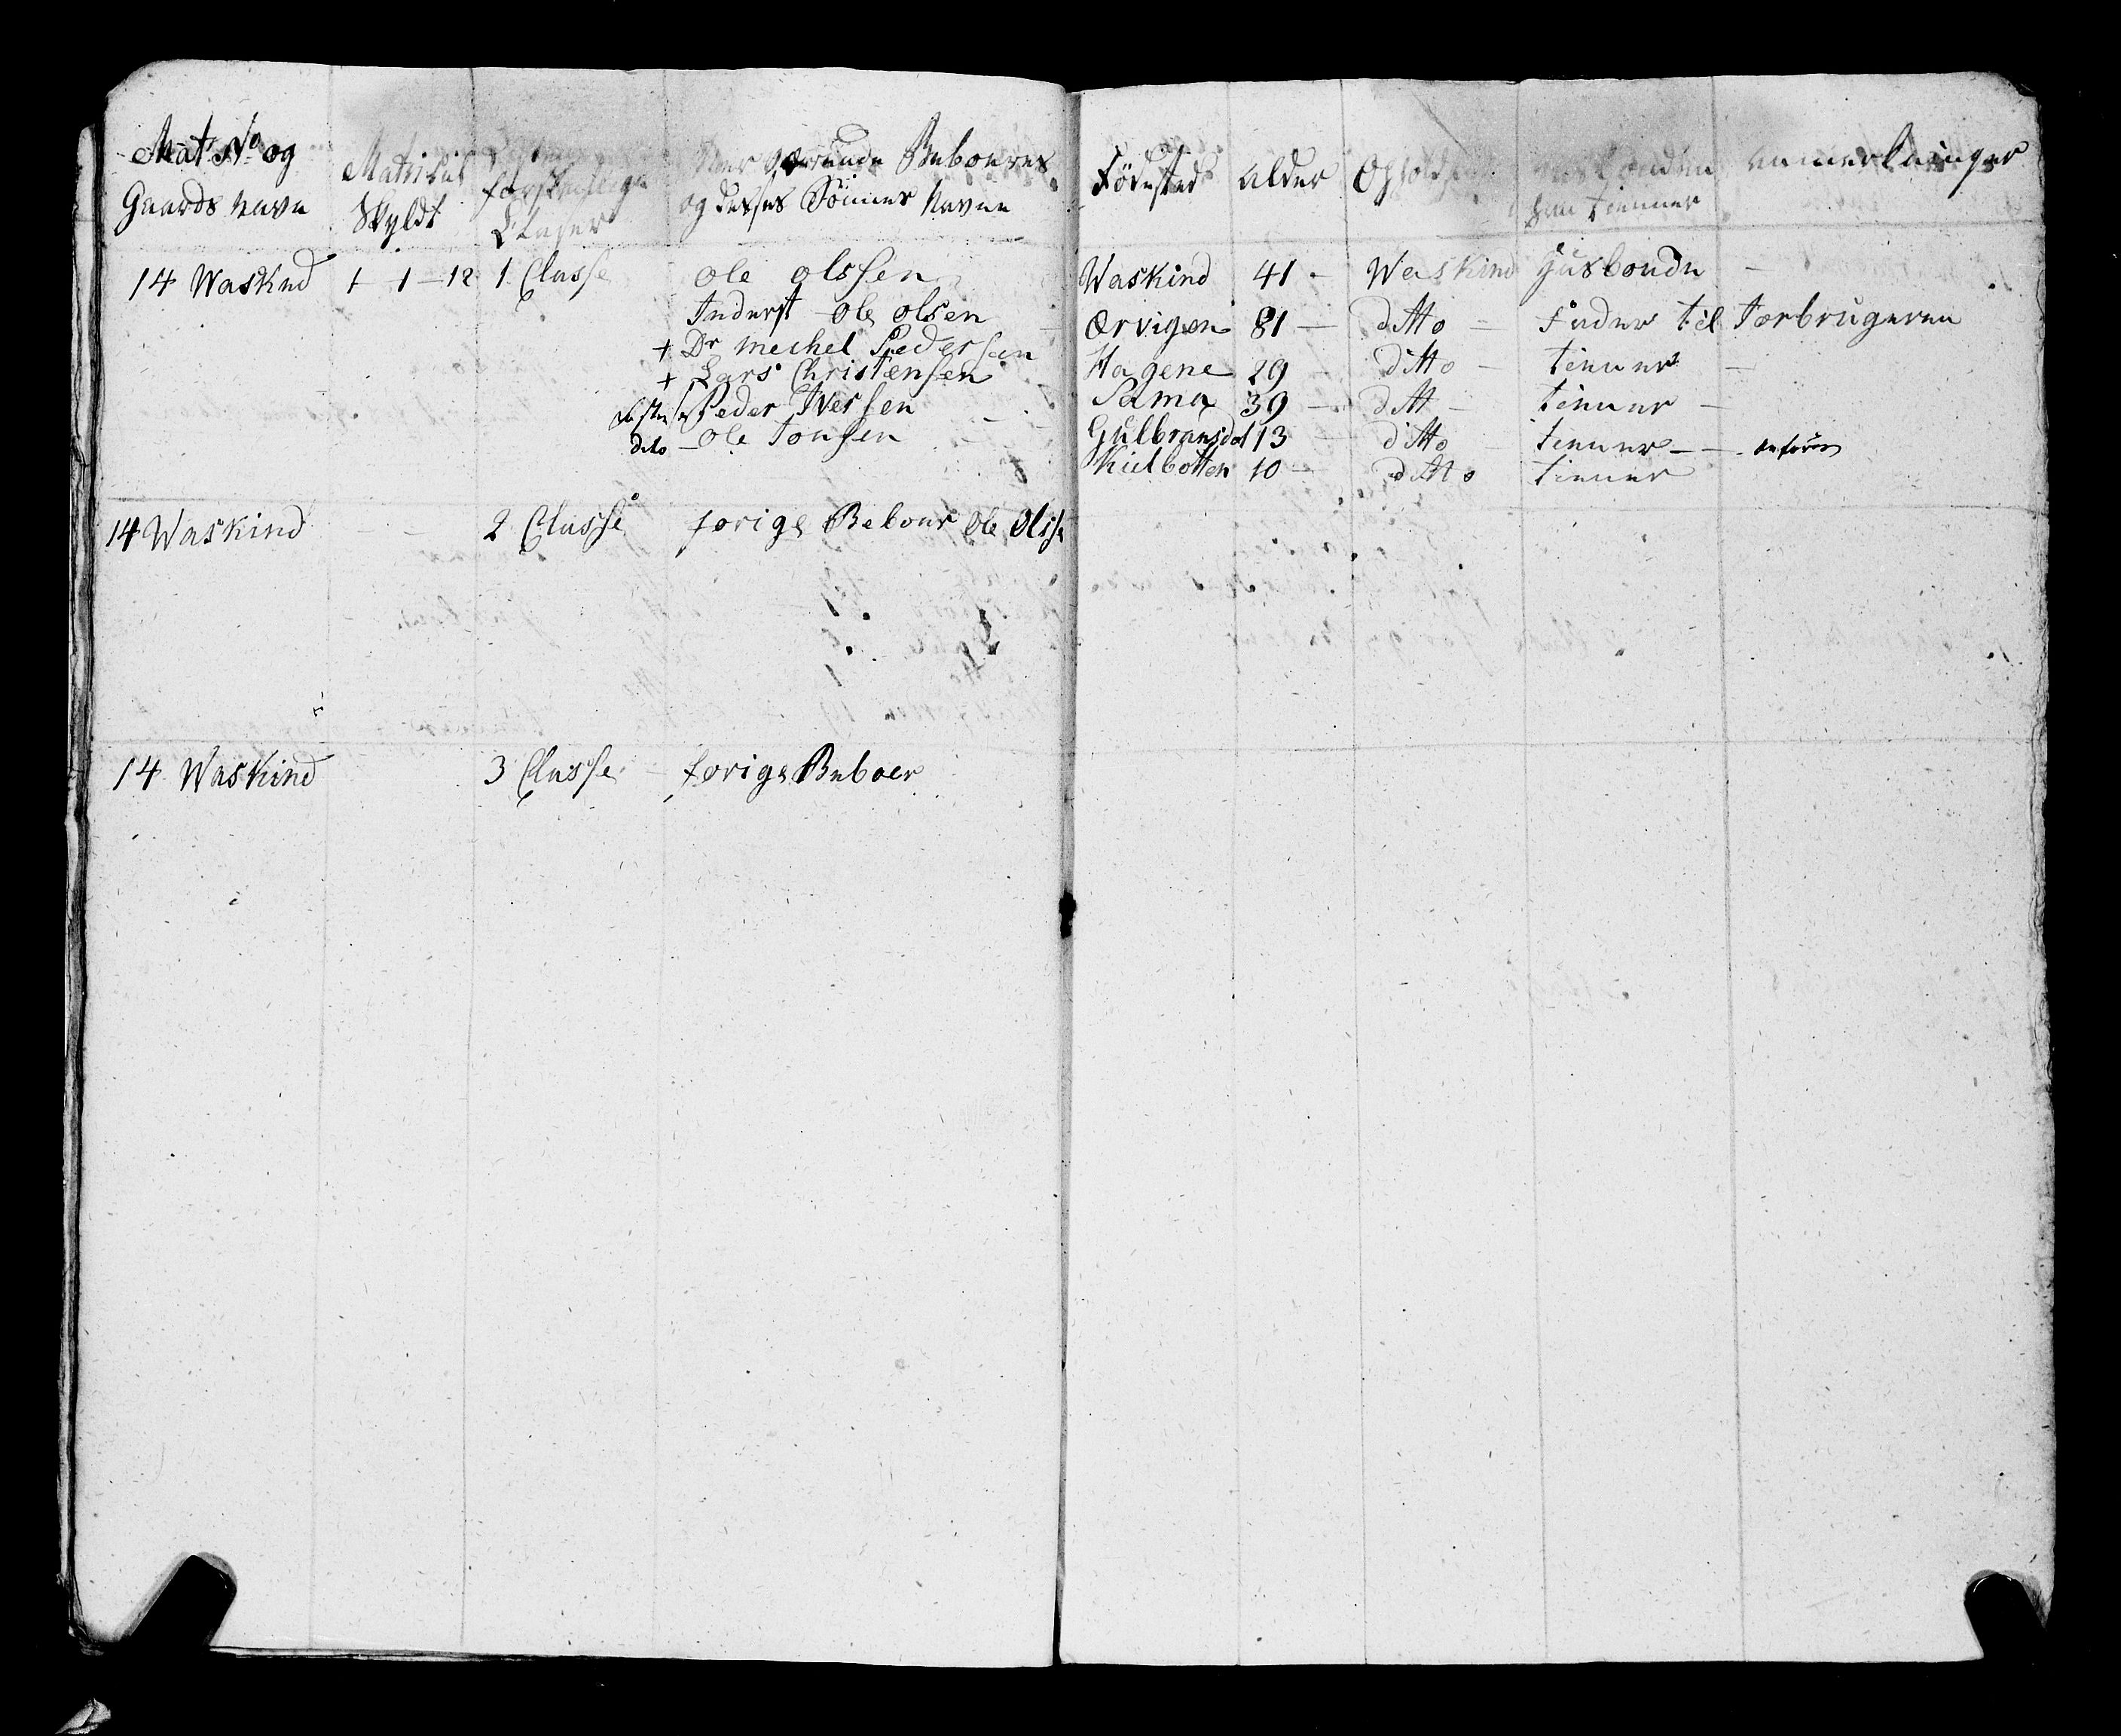 Mat No og
Gaards Navn
Matricul
Skyldt
forskielige
Claser
Nær værende Beboeres
og deses Sönner Navne
Födested
Alder
Ophold
Husbonden
han tienner
Anmerkninger
14 Waskind 1 1 — 12 1 Classe Ole Olssen Waskind 41 — Waskind Husbonde —
Inderst — Ole Olsen Ørvigen 81 — ditto — Fader til Forbrugeren
+ Do Mechel Pedersen Hagene 29 — ditto — tienner —
+ Lars Christensen Sama 39 — ditt — tienner —
Peder Iversen Gulbransdal 13 — ditto — tienner — —
dito — Ole Jonsen Kielbotten 10 — ditto tienner
14 Waskind — 2 Classe forige Beboer Ole Olsse
14 Waskind 3 Classe — forige Beboer